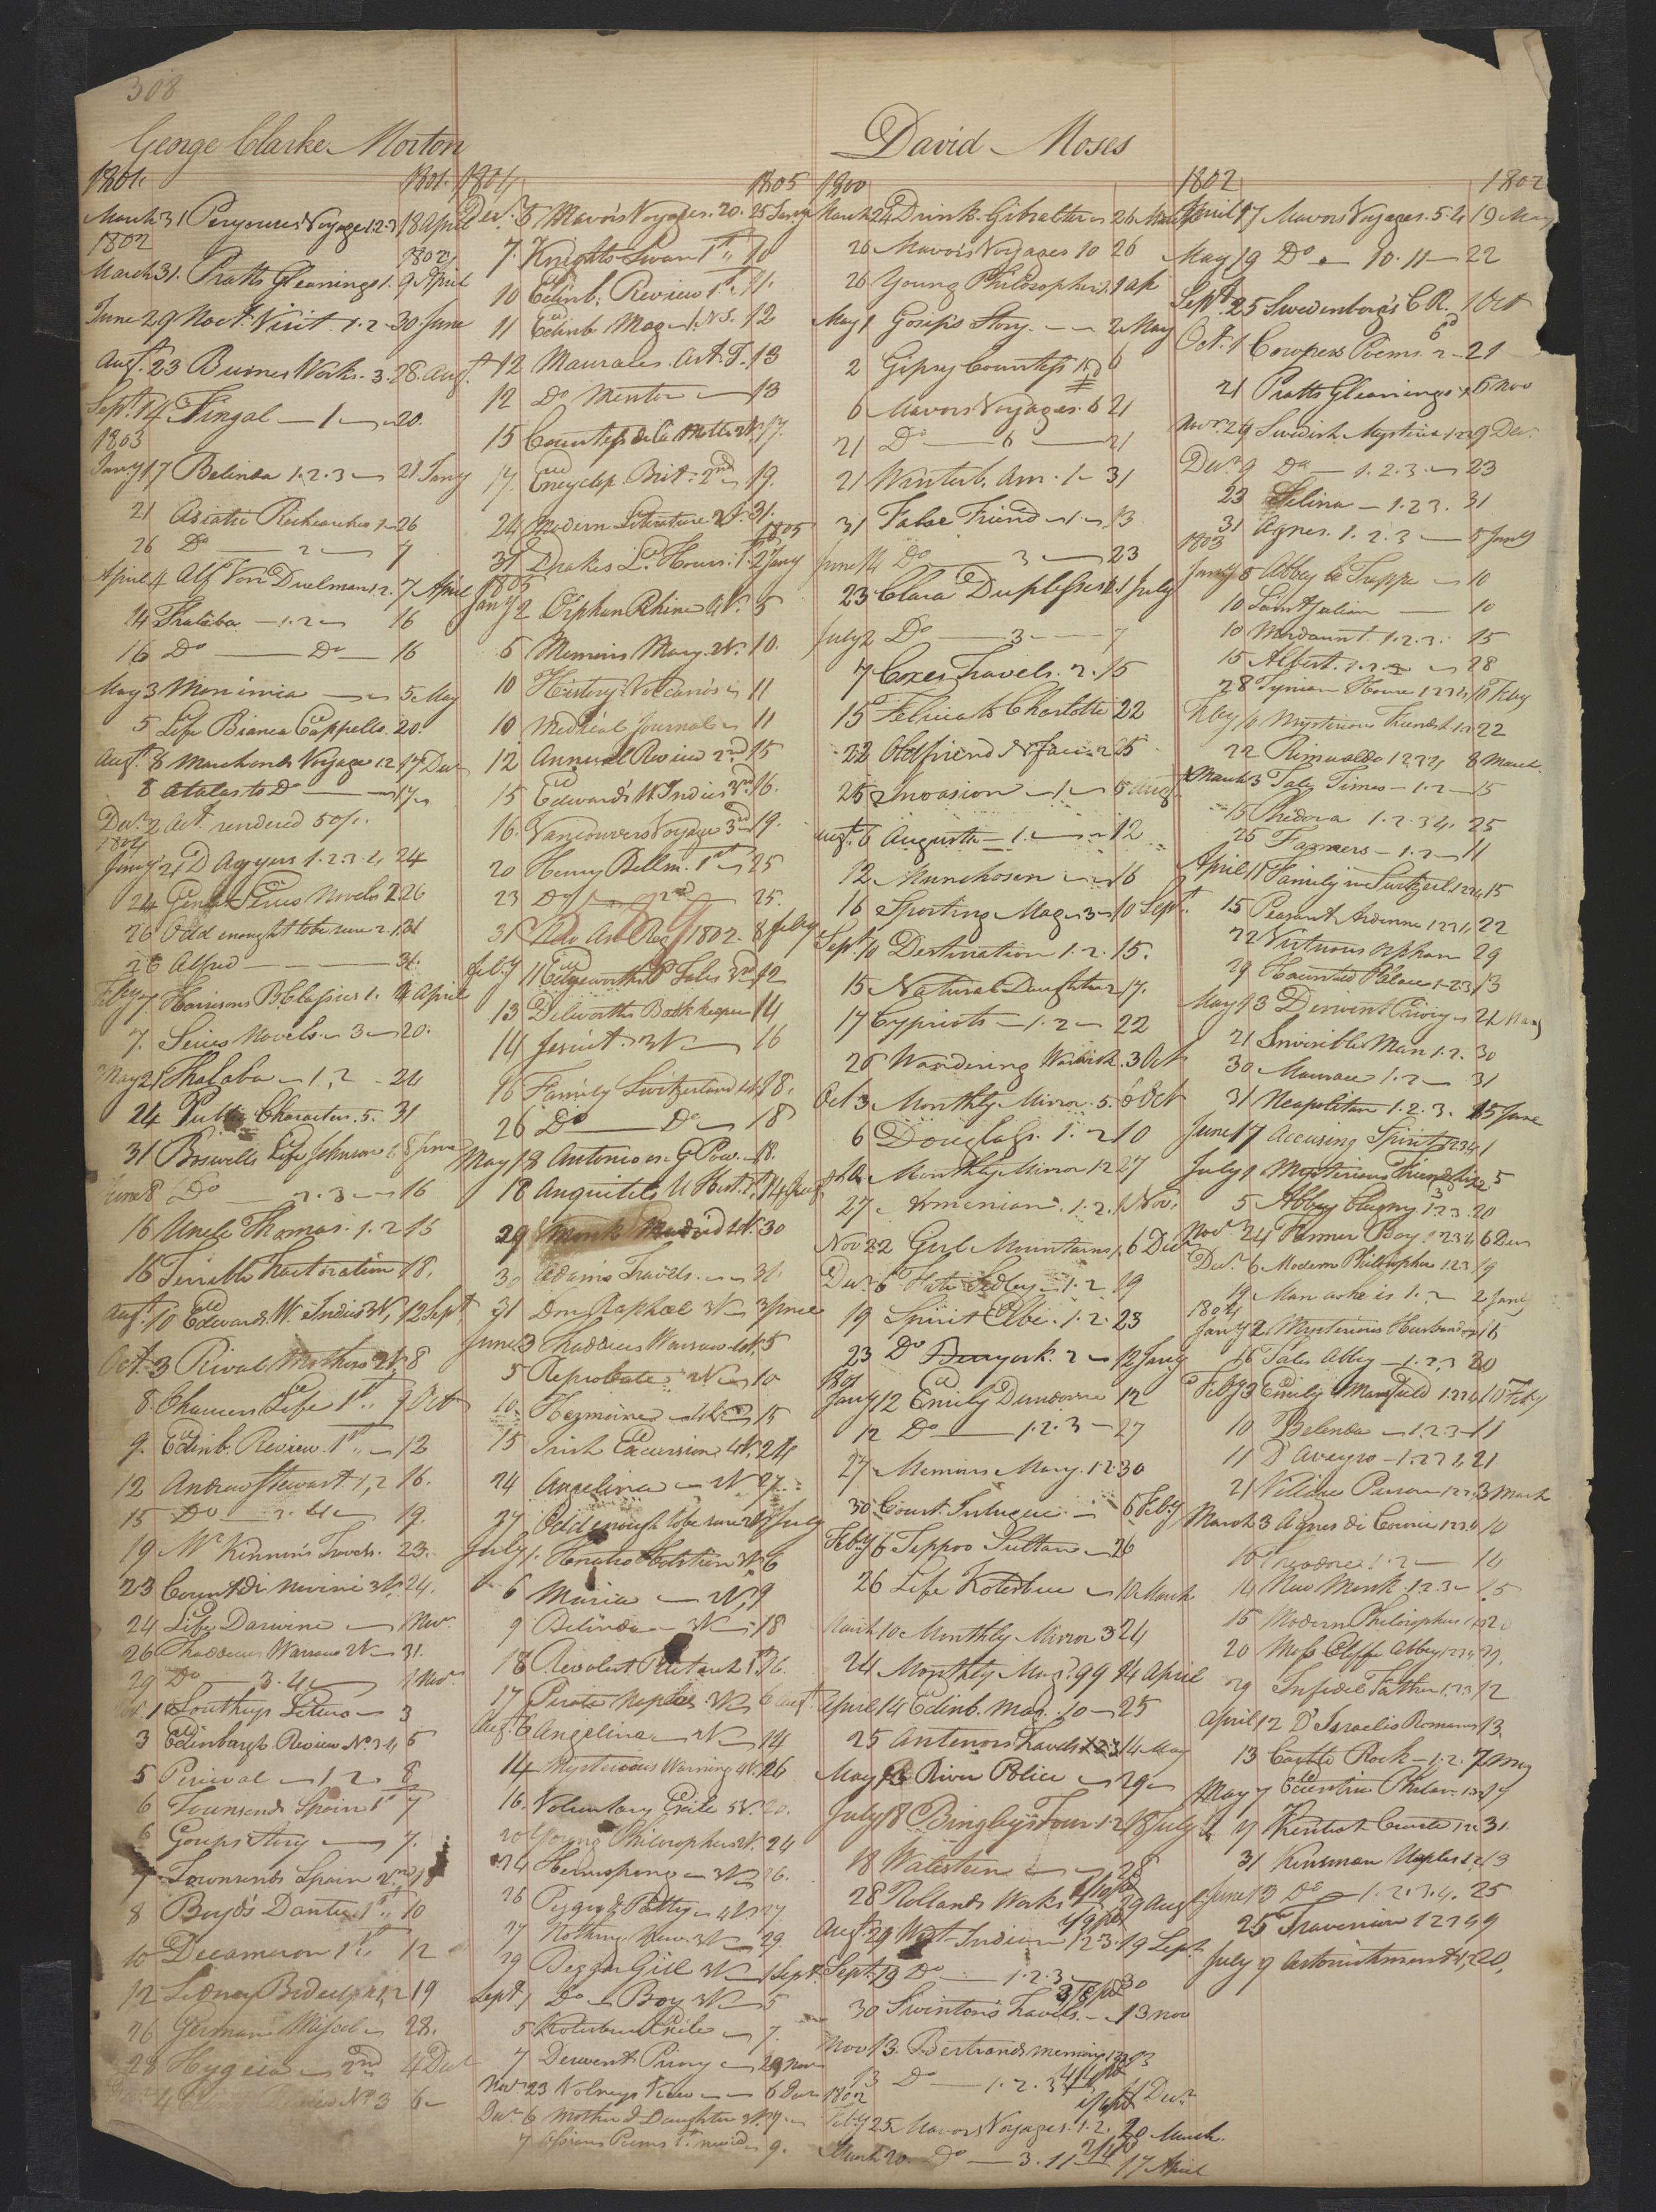 308
George Clarke Morton
1801. 1801.
March 31 Perouses Voyage 1.2.3 18 April
1802 1802
March 31. Pratts Gleanings 1. 9 April
June 29 Noct. Visit. 1.2 30 June
Augt. 23 Burnes Works. 3. 28. Augt.
Sept. 14 Fingal 1 20.
1803
Jany 17 Belinda 1.2.3 21 Jany
21 Asiatic Reshearches 1 26
26 Do 2 7
April 4 Alf Von Duelman 1.2. 7 April
14 Thalaba 1.2 16
16 Do Do 16
May 3 Monimia 5 May
5 Life Bianca Cappello 20.
Augt. 8 Marchands Voyage 1.2 17 Decr
8 Atalas to Do 17
Decr. 2 Act. rendered 50/.
1804
Jany 21 D Aggyers 1.2.3.4 24
24 Novels 2 26
26 Odd enought to be sure 2. 1. 31
26 Alfred 31.
Feby 7 Harrisons B. Classics 1. 2 April
7. Series Novels 3 20.
May 21 Thalaba 1.2 24
24 Public Characters. 5. 31
31 Boswells Life Johnson 1. 8 June
June 8 Do 2.3 16
16 Uncle Thomas. 1.2 15
16 Terrible Tractoration 18.
Augt. 10 Edwards W. Indies 3V. 12 Sept
Oct. 3 Rival Mothers 2V. 8
8. Chaucers Life 1st 9 Oct
9. Edinb. Review. 1st 12
12 Andrew Stewart 1,2 16.
15 Do 3.4 19.
19 McKinnin's Travels. 23.
23 Count di Novini 3V. 24.
24 Life Darwine 1 Nov.
26 Thaddeus Warsaw 2V 31.
29 Do 3.4 1 Nov.
1 Southeys Letters 3
3 Edinburgh Review No. 3.4 5
5 Percival 1.2. 8
6 Townsends Spain 1st 7
6 Gosips Story 7.
7 Townsends Spain 2nd 18
8 Boyds Dante 1st 10
10 Decameron 1st 12
12 Sidney Bidulph 1,2 19
26 German Miscel 28.
28 Hygeia 2nd 4 Decr
No. 3 6
1804 1805
Decr. 5 Mavors Voyages. 20. 25 Jany
7. Knights Swan 1st 10
10 Edinb. Review 1st 11.
11 Edinb. Mag. 1. N.S. 12
12 Mauraces. Art. T. 13
12 Do Mentor 13
15 Countess de la Motte 2V 17.
17. Encyclop. Brit. 2nd 19.
24 Modern Literature. 2V. 31.
1805
31 Drakes L. Hours. 1st 2 Jany
1805
Jany 2 Orphan Rhine 4V. 5
5 Memoirs Mary. 2V. 10.
10 History Volcano's 11
10 Medical Journal 11
12 Annual Review 2nd 15
15 Edwards W. Indies 3rd 16.
16. Vancouvers Voyage 3rd 19.
20 Henry Bellm. 1st 25
23 Do 2nd 25.
31 New An. Reg. 1802. 8 Feby
Feby 11 Edgeworths P. Tales 3rd 12
13 Dilworths Book keeper 14
14 Jesuit. 3V 16
16 Family Switzerland 4V. 18.
26 Do Do 18
May 18 Antonio or G Pow. 18.
18 Anquitils U Hist. 1st 14 Augt.
29 Monk Madrid 4V. 30
30 Adams Travels. 31.
31 Don Raphael 3V 3 June
June 3 Thaddeus Warsaw 4V. 5
5 Reprobate 2V 10
10. Hermione 4V 15
15 Irish Excursion 4V. 24
24 Angelina 2V 27
27 Odd enough to be sure 2V July
July 1. Horatio Holstein 3V. 6
6 Maria 2V. 9
9 Belinda 3V 18
18 Revolut. Plutarch 1st 26.
17 Pirate Naples 3V 6 Augt.
Augt. 6 Angelina 2V 14
14 Mysterious Warning 4V. 26
16. Voluntary Exile 5V. 20.
20 Young Philosopher 4V. 24
24 Hermsprong 3V 26.
26 Peggy & Patty 4V 27
27 Nothing New 3V 29.
29 Beggar Girl 3V 1 Sept.
Sept. 1 Do Boy 3V 5
5 Kotzebues Exile 7.
7 Derwent Priory 29 Nov
Novr. 23 Volneys View 6 Decr
Decr. 6 Mother & Daughter 3V. 7
7 Ossians Poems 1st 9.
David Moses
1800
March 24 Drink. Gibralter 26 March
26 Mavors Voyages 10 26
26 Young Philosopher 1 Ap
May 1 Gosip's Story. 2 May
2 Gipsey Countess 1.2 6
6 Mavors Voyages 6 21
21 Do 6 21
21 Winterb. Am. 1 31
31 False Friend 1 13
June 14 Do 3 23
23 Clara Duplessis 1 July
July 2 Do 3 7
7 Coxes Travels. 2. 15
15 Felicia to Charlotte 22
22 Old friend N face 2 25
25 Invasion 1 5 Augt
Augt. 6 Augusta 1. 12
12 Munchosen 16
16 Sporting Mag. 3 10 Sept.
Sept. 10 Destination 1.2. 15.
15 Natural Daughter 17.
17 Cypriots 1.2 22
26 Wandering Warwick. 3 Oct
Oct 3 Monthly Mirror. 5. 6 Oct
6 Douglass. 1.2 10
Monthly Mirror 12 27
27 Armenian. 1.2. 1 Nov.
Nov 22 Girl Mountains 6 Decr
Decr. 6 Kate Sedley 1.2 19
19 Spirit Elbe. 1.2. 23
23 Do 2 12 Jany
1801
Jany 12 Emily Dundorne 12
12 Do 1.2.3 27
27 Memoirs Mary. 1.2 30
30 Court Intrigue 6 Feby
Feby 6 Teppoo Sultan 26
26 Life Kotzebue 10 March
March 10 Monthly Mirror 3 24
24 Monthly Mag. 99 14 April
April 14 Edinb. Mag. 10 25
25 Antenors Travels 1.2.3 14 May
May 13 River Police 29
July 18 Bingley's Tour. 1.2 18 July
18 Walstein 28
28 Rollands Works 29 Augt
Augt. 29 West Indian 1.2.3. 19 Sept
Sept. 19 Do 1.2.3 30
30 Swinton's Travels. 13 Nov
Nov 13. Bertrands memoirs 1.2.3 13
13 Do 1.2.3 11 Decr.
1802
Feby 25 Mavors Voyages. 1.2. 20 March.
March 20 Do 3.11 17 April
1802 1802
April 17 Mavors Voyages. 5.4 19 May
May 19 Do 10.11 22
Sept. 25 Swedenborg's C R. 1 Oct
Oct. 1 Cowpers Poems. 2 21
21 Pratts Gleanings 6 Nov
Novr. 24 Swedish Mysteries 1.2.3 9 Decr.
Decr. 9 Do 1.2.3. 23
23 Selina 1.2.3. 31
31 Agnes. 1.2.3 5 Jany
1803
Jany 5 Abbey la Trappe 10
10 Saint Julien 10
10 Mordaunt. 1.2.3. 15
15 Albert. 1.2.3 28
28 Tynian House 1.2.3.4 10 Feby
Feby 10 Mysterious Friendsh 1.2 22
22 Rimualdo 1.2.3.4 8 March.
March 3 Tale Times 1.2 15
15 Phedora 1.2.3.4. 25
25 Farmers 1.2 11
April 11 Family in Switzerl 1.2.3.4 15
15 Peasant Ardenne 1.2.3.4. 22
22 Virtuous Orphan 29
29 Haunted Palace 1.2.3 13
May 13 Derwent Priory 21 May
21 Invisible Man 1.2. 30
30 Maurace 1.2 31
31 Neapolitan 1.2.3. 15 June
June 17 Accusing Spirit 1.2.3.4 1
July 1 Mysterious Friendship 5
5 Abbey Clugny 1.2.3. 20
Novr. 24 Farmer Boy 1.2.3.4 6 Decr
Decr. 6 Modern Philosopher 1.2.3 19
19 Man as he is 1.2 2 Jany
1804
Jany 2 Mysterious Husband 16
16 Tales Abbey 1.2.3 20
Feby 3 Emily Mansfield 1.2.3.4 10 Feby
10 Belinda 1.2.3 11
11 D'Aveyro 1.2.3.4. 21
21 Village Parson 1.2.3 3 March
March 3 Agnes di Courci 1.2.3.4 10
10 1.2 14
14 New Monk. 1.2.3 15
15 Modern Philosopher 1.2.3 20
20 Moss Cliffe Abbey 1.2.3.4 29.
29 Infidel Father 1.2.3 12
April 12 D'Israelis Romances 13
13 Castle Rock 1.2. 7 May
May 7 Eccentric Philan. 1.2.3 17
17 Kentish Curate 1.2.3 31.
31 Kinsman Naples 1.2. 13
June 13 Do 1.2.3.4. 25
25 Traverion 1.2.3.4 9
July 9 Astonishment 1.2. 20.